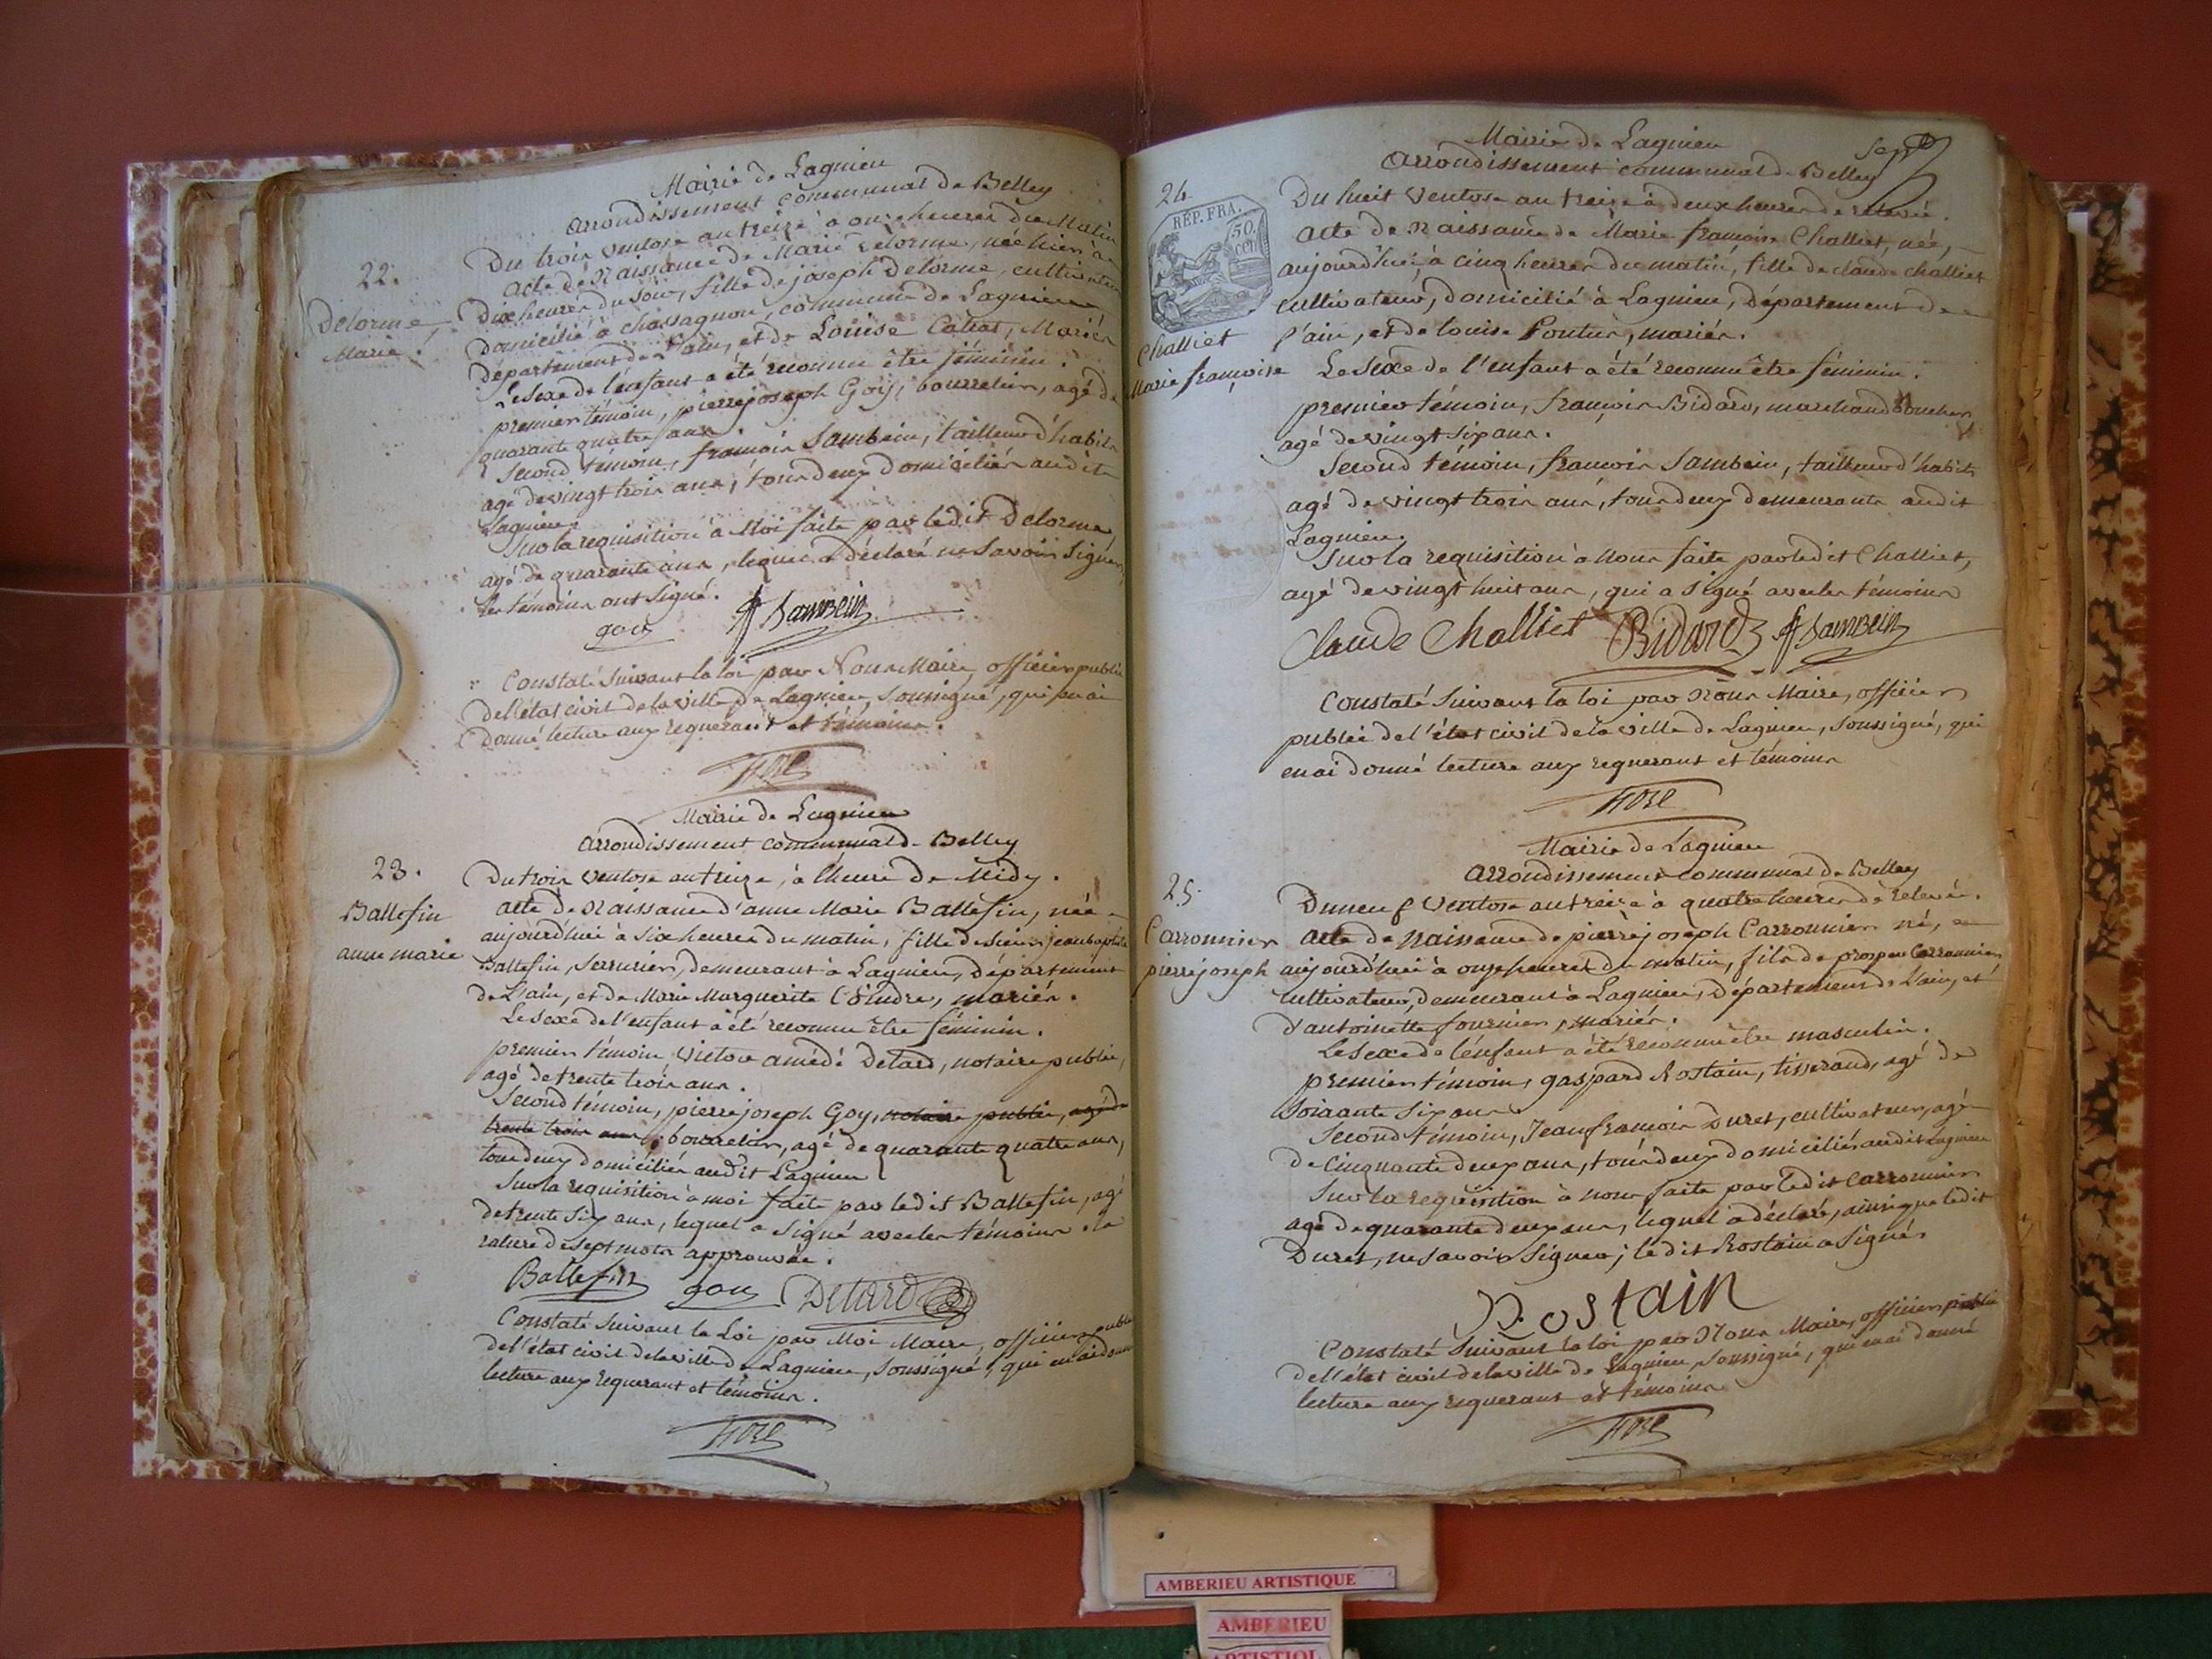 Mairie de Lagnieu
arrondissement communal de Belley
22.
Delorme,
Marie.
Du trois ventose an treize à onze heures du Matin
acte de Naissance de Marie Delorme, née hier à
Dix heures du soir, fille de joseph Delorme, cultivateur
Domicilié à chassagnon, commune de Lagnieu
département de l'ain, et de Louise Mariés
Le Sexe de l'enfant a été reconnu être féminin.
premier témoin, pierre joseph Goy, bourrelier, agé de
quarante quatre ans.
Second témoin, françois Sambein, tailleur d'habits
agé de vingt trois ans, tous deux domiciliés audit
Lagnieu
Sur la requisition à Moi faite par ledit Delorme
agé de quarante ans, lequel a déclaré ne Savoir Signer,
les témoins ont signé.
goy f Sambein
Constaté Suivant la loi par Nous Maire, officier public
de l'état civil de la ville de Lagnieu, Soussigné, qui en ai
Donné lecture aux requérant et témoins.
Mairie de Lagnieu
arrondissement communal de Belley
23.
Ballefin
anne marie
Du trois ventose an treize, à l'heure de Midy.
acte de Naissance d'anne Marie Ballefin, née
aujourd'hui à six heures du matin, fille de sieur jean baptiste
Ballefin, Serrurier, demeurant à Lagnieu, département
de L'ain, et de Marie Marguerite Coindre, mariés.
Le Sexe de l'enfant a été reconnu être féminin.
premier témoin Victor amédé Detard, notaire public,
agé de trente trois ans.
Second témoin, pierre joseph Goy, notaire public, agé de
trente trois ans, bourrelier, agé de quarante quatre ans,
tous deux domiciliés audit Lagnieu
Sur la requisition à moi faite par ledit Ballefin, agé
de trente Six ans, lequel a Signé avec les témoins. la
rature de sept mots approuvée.
Ballefin goy Detard
Constaté Suivant la Loi par Moi Maire, officier public
de l'état civil de la ville de Lagnieu, Soussigné, qui en ai donné
lecture aux requerant et témoins.
Mairie de Lagnieu
arrondissement communal de Belley
Sept
24.
RÉP. FRA.
50
cen
Challiet
Marie françoise
Du huit Ventose an treize à deux heures de relevée.
acte de Naissance de Marie françoise Challiet, née,
aujourd'hui, à cinq heures du matin, fille de claude challiet
cultivateur, domicilié à Lagnieu, Département de
l'ain, et de louise Pontus, mariés.
Le Sexe de l'enfant a été reconnu être féminin.
premier témoin, françois Bidard, marchand boucher
agé de vingt six ans.
Second témoin, françois Sambein, tailleur d'habits
agé de vingt trois ans, tous deux demeurants audit
Lagnieu.
Sur la requisition à Nous faite par ledit Challiet,
agé de vingt huit ans, qui a signé avec les témoins
Claude Challiet Bidard f Sambein
Constaté Suivant la loi par Nous Maire, officier
public de l'état civil de la ville de Lagnieu, soussigné, qui
en ai donné lecture aux requerant et témoins
Mairie de Lagnieu
arrondissement communal de Belley
25.
Carronnier
pierre joseph
Du neuf Ventose an treize à quatre heures de relevée.
acte de Naissance de pierre joseph Carronnier né,
aujourd'hui à onze heures du matin, fils de prosper Carronnier
cultivateur, demeurant à Lagnieu, Département de l'ain, et
d'antoinette fournier, mariés.
Le Sexe de l'enfant a été reconnu être masculin.
premier témoin, gaspard Rostain, tisserand, agé de
Soixante Six ans
Second témoin, Jean françois Duret, cultivateur, agé
de Cinquante deux ans, tous deux domiciliés audit Lagnieu
Sur la requisition à nous faite par ledit Carronnier
agé de quarante deux ans, lequel a déclaré, ainsi que ledit
Duret, ne savoir Signer; ledit Rostain a Signé.
Rostain
Constaté Suivant la loi par Nous Maire, officier public
de l'état civil de la ville de Lagnieu, Soussigné, qui en ai donné
lecture aux requerant et témoins
AMBERIEU ARTISTIQUE
AMBERIEU